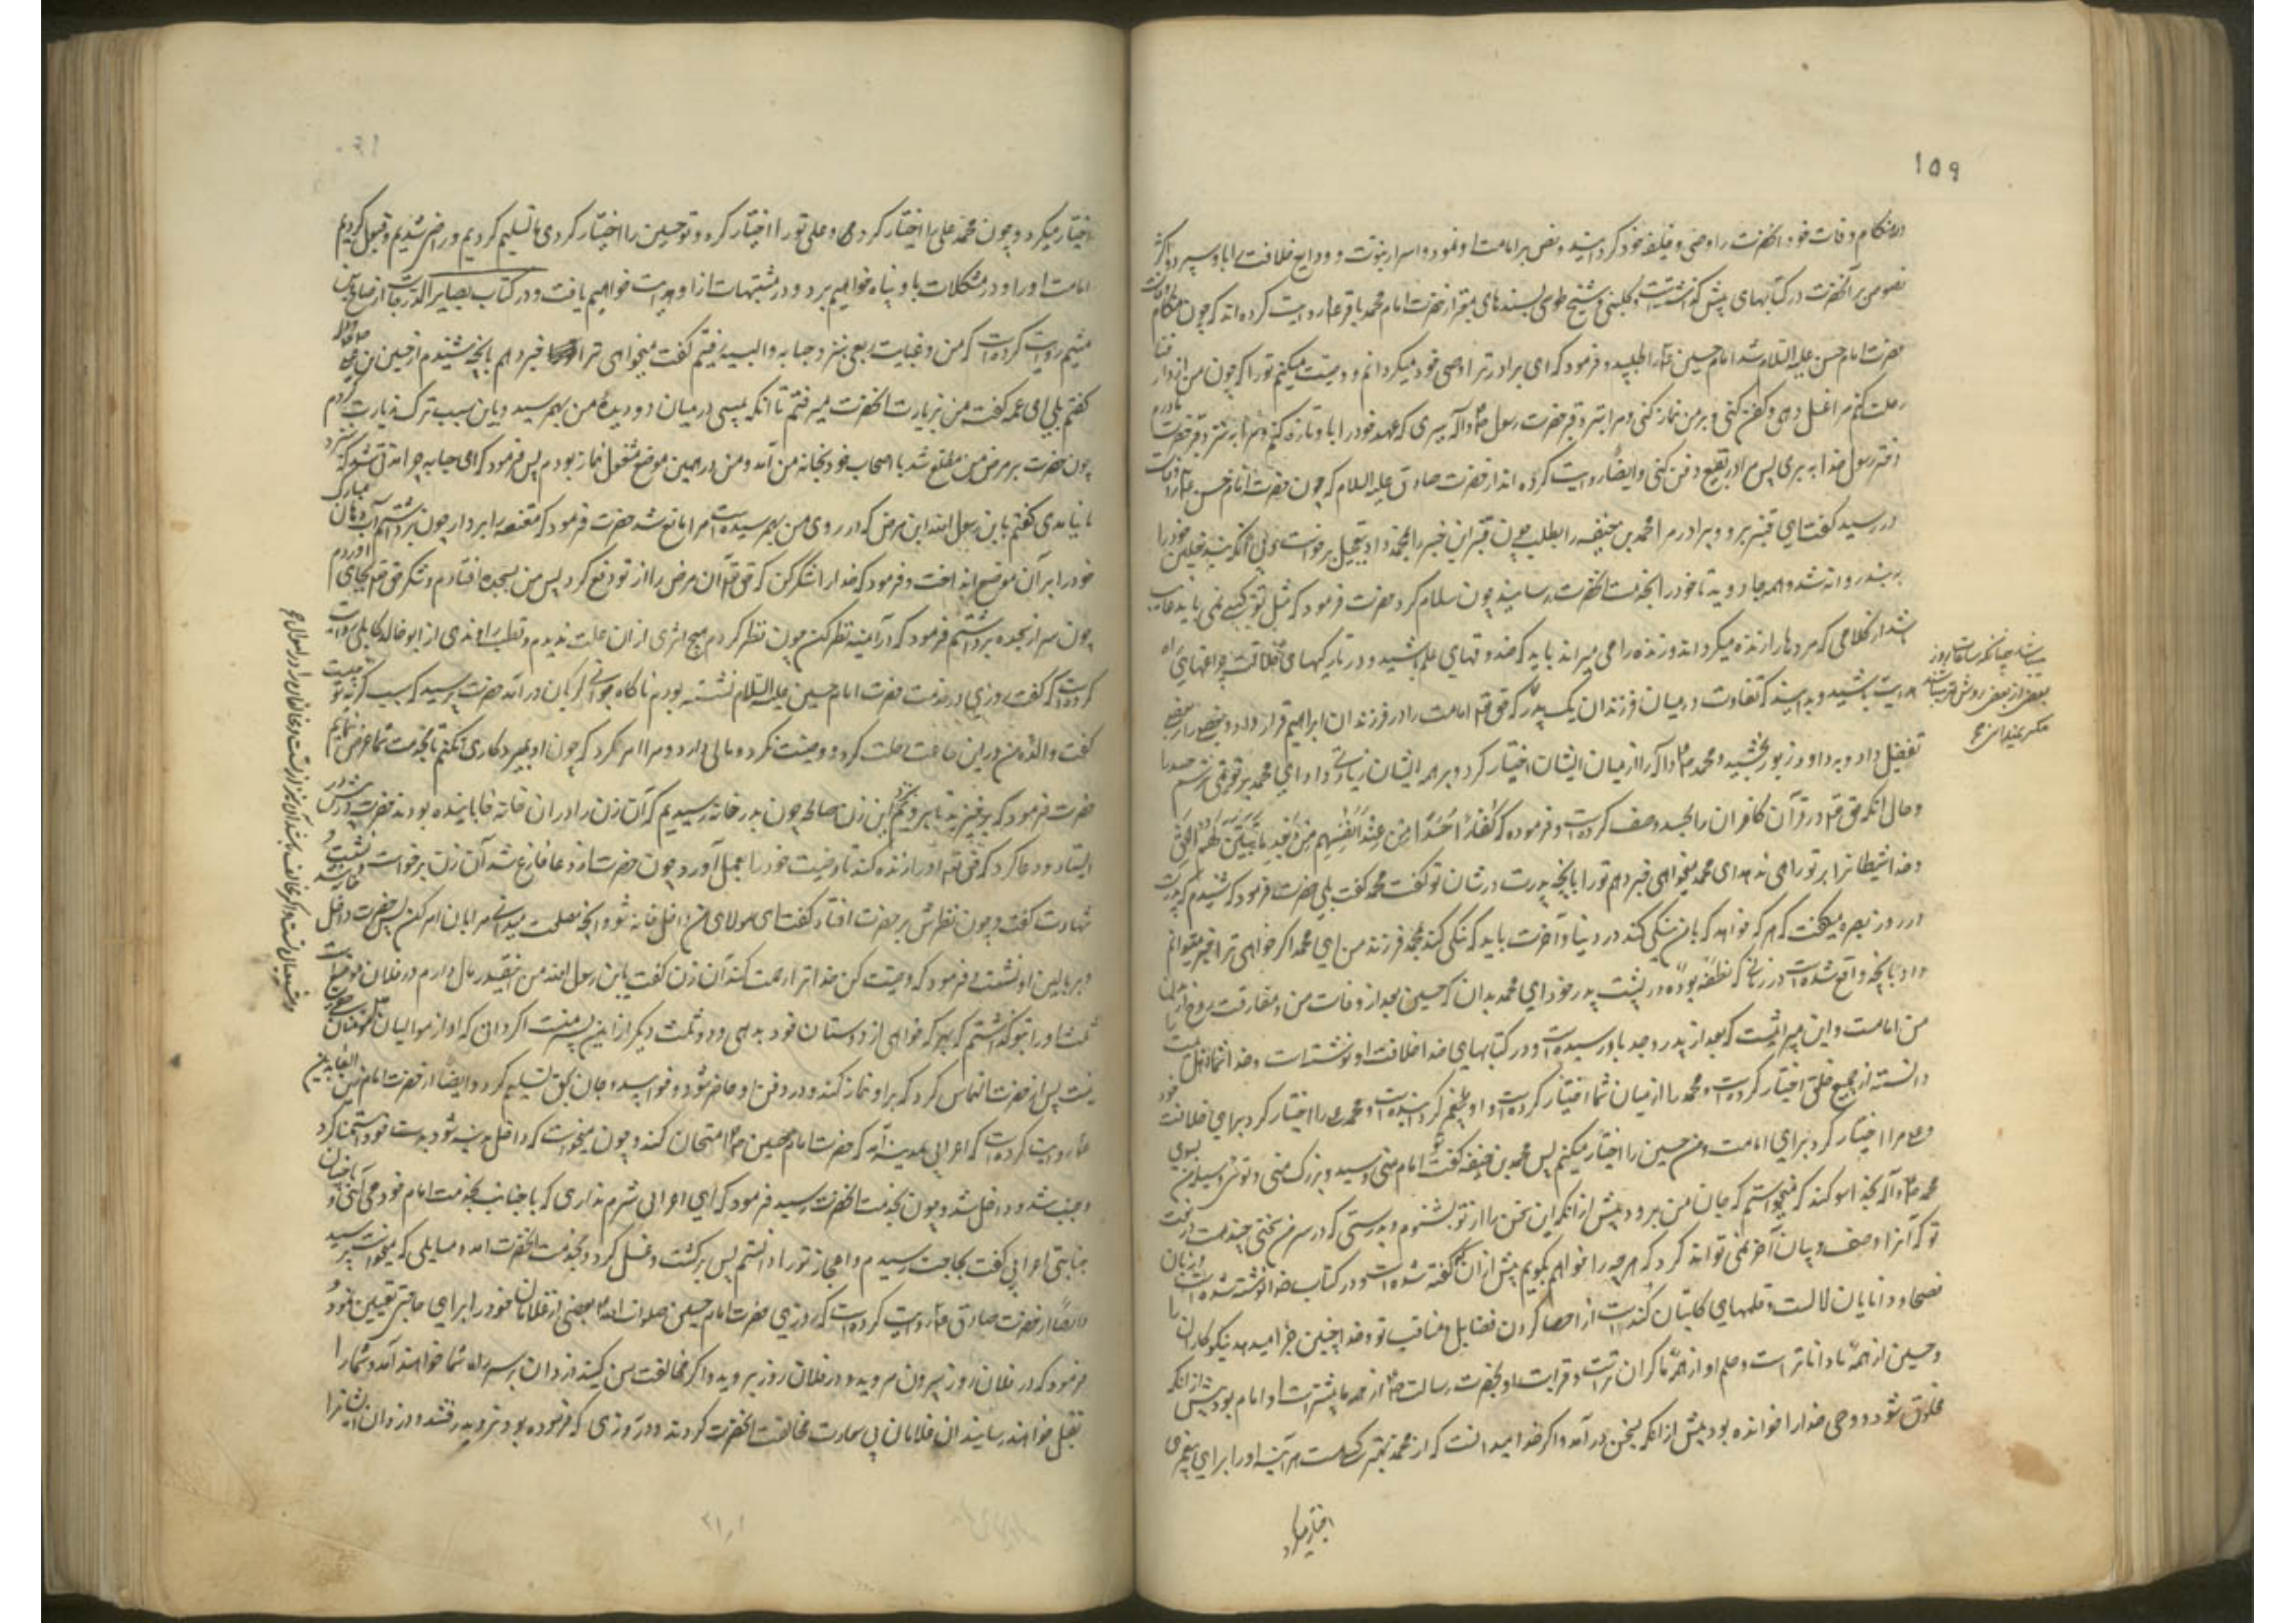 ۱۵۹
در هنگام وفات خود آنحضرت را وصی و خلیفه خود گردانید و نص بر امامت او نمود و اسرار نبوت و ودایع خلافت را باو سپرد و اکثر
نصوص بر آنحضرت در کتابهای پیش گذشت و کلینی و شیخ طوسی بسندهای معتبر از حضرت امام محمد باقر ع روایت کرده اند که چون هنگام وفات
حضرت امام حسن علیه السلام شد امام حسین ع را طلبید و فرمود که ای برادر ترا وصی خود میگردانم و وصیت میکنم تورا که چون من از دار فنا
رحلت کنم مرا غسل دهی و کفن کنی و بر من نماز کنی و مرا بنزد قبر حضرت رسول ص و آله ببری که عهد خود را با او تازه کنم و مرا بنزد قبر حضرت مادرم
دختر رسول خدا ببری پس مرا در بقیع دفن کنی و ایضا روایت کرده اند از حضرت صادق علیه السلام که چون حضرت امام حسن ع را وفات
در رسید گفت ای قنبر برو و برادرم محمد بن حنفیه را بطلب چون قنبر این خبر را بمحمد داد بتعجیل برخواست بی آنکه بند نعلین خود را
به بندد روانه شد و همه جا دوید تا خود را بخدمت آنحضرت رسانید چون سلام کرد حضرت فرمود که مثل تو کسی نمی باید غایب
شد از کلامی که مردها را زنده میگرداند و زنده را می میراند باید که صندوقهای علم باشید و در تاریکیهای ضلالت چراغهای راه
هدایت باشید و بدانید که تفاوت در میان فرزندان یک پدر که حق تعالی امامت را در فرزندان ابراهیم قرار داد و بعضی را بر بعضی
تفضیل داد و به داود زبور بخشید و محمد ص و آله را از میان ایشان اختیار کرد و بر همه ایشان زیادتی داد ای محمد بر تو نمی ترسم حسد را
و حال آنکه حق تعالی در قرآن کافران را بحسد وصف کرده است و فرموده که کُفَّارًا حَسَدًا مِنْ عِنْدِ أَنْفُسِهِمْ مِنْ بَعْدِ مَا تَبَيَّنَ لَهُمُ الْحَقُّ
و خدا شیطانرا بر تو راهی ندهد ای محمد میخواهی خبر دهم تورا بآنچه پدرت در شان تو گفت محمد گفت بلی حضرت فرمود که شنیدم که پدرت
در روز بصره میگفت که هر که خواهد که بامن نیکی کند در دنیا و آخرت باید که نیکی کند بمحمد فرزند من ای محمد اگر خواهی ترا خبر میتوانم
داد بآنچه واقع شده است در زمانی که نطفه بوده در پشت پدر خود ای محمد بدان که حسین بعد از وفات من و مفارقت روح از بدن
من امامت و این میراثیست که بعد از پدر و جد باو رسیده است و در کتابهای خدا خلافت او نوشته است و خدا شما اهلبیت را
دانسته از جمیع خلق اختیار کرده است و محمد را از میان شما اختیار کرده است و محمد علی را اختیار کرد برای خلافت خود
و علی مرا اختیار کرد برای امامت و من حسین را اختیار میکنم پس محمد بن حنفیه گفت تو امام منی و سید و بزرگ منی و تویی وسیله من بسوی
محمد ص و آله بخدا سوگند که میخواستم که جان من برود پیش از آنکه این سخن را از تو بشنوم و بدرستی که در سر من سخنی چند هست در نعت
تو که آنرا وصف و بیان آخر نمی تواند کرد که هر چه را خواهم بگویم پیش از آن گفته شده است و در کتاب خدا نوشته شده است و زبان
فصحا و دانایان لالست و قلمهای کاتبان کُند است از احصا کردن فضایل و مناقب تو و خدا چنین جزا میدهد نیکوکاران را
و حسین از همه ما داناتر است و حلم او از همه ما گران تر است و قرابت او بحضرت رسالت ص از همه ما بیشتر است او امام بود پیش از آنکه
مخلوق شود و وحی خدا را خوانده بود پیش از آنکه بسخن در آمد و اگر خدا میدانست که از محمد بهتر کسی هست هر آینه او را برای پیغمبری
اختیار میکرد
بعضی از بعضی روشن تر
اختیار میکرد و چون محمد علی را اختیار کرد و علی تو را اختیار کرد و تو حسین را اختیار کردی ما تسلیم کردیم و راضی شدیم و قبول کردیم
امامت او را و در مشکلات باو پناه خواهیم برد و در مشتبهات از او هدایت خواهیم یافت و در کتاب بصایر الدرجات از صالح بن
میثم روایت کرده است که من و عبایت ربعی بنزد حبابه والبیه رفتیم گفت میخواهی ترا خبر دهم بآنچه شنیدم از حسین بن علی
گفتم بلی ای عمه گفت من بزیارت آنحضرت میرفتم تا آنکه پیسی در میان دو دیده من بهم رسید و باین سبب ترک زیارت کردم
چون حضرت بر مرض من مطلع شد با اصحاب خود بخانه من آمد و من در همین موضع مشغول نماز بودم پس فرمود که ای حبابه چرا نزد
ما نیامدی گفتم یا بن رسول الله این مرض که در روی من بهم رسیده است مرا مانع شد حضرت فرمود که مقنعه را بردار چون برداشتم آب دهان مبارک
خود را بر آن موضع انداخت و فرمود که خدا را شکر کن که حق تعالی آن مرض را از تو دفع کرد پس من بسجده افتادم و شکر حق تعالی بجای آوردم
چون سر از سجده برداشتم فرمود که در آینه نظر کن چون نظر کردم هیچ اثری از آن علت ندیدم و قطب راوندی از ابو خالد کابلی روایت
کرده است که گفت روزی در خدمت حضرت امام حسین علیه السلام نشسته بودم ناگاه جوانی گریان در آمد حضرت پرسید که سبب گریه تو چیست
گفت والده من در این ساعت رحلت کرد و وصیت نکرد و مالی دارد و مرا امر کرد که چون او بمیرد کاری نکنم تا بخدمت شما عرض نمایم
حضرت فرمود که برخیزید تا برویم بنزد این زن صالحه چون بدر خانه رسیدیم که آن زن را در آن خانه خوابانیده بودند حضرت بر در
ایستاد و دعا کرد که حق تعالی او را زنده کند تا وصیت خود را بعمل آورد چون حضرت از دعا فارغ شد آن زن برخواست و نشست و
شهادت گفت و چون نظرش بر حضرت افتاد گفت ای مولای من داخل خانه شو و آنچه مصلحت میدانی مرا بآن امر کن پس حضرت داخل خانه شد
و بر بالین او نشست فرمود که وصیت کن خدا ترا رحمت کند آن زن گفت یا بن رسول الله من اینقدر مال دارم در فلان موضع است
ثلث او را بتو گذاشتم که بهر که خواهی از دوستان خود بدهی و دو ثلث دیگر از این پسر منست اگر دانی که او از موالیان
پس از حضرت التماس کرد که بر او نماز کند و در دفن او حاضر شود و خوابید و جان بحق تسلیم کرد و ایضا از حضرت امام زین العابدین
ع روایت کرده است که اعرابی بمدینه آمد که حضرت امام حسین ع را امتحان کند و چون میخواست که داخل مدینه شود بدست خود استمنا کرد
و جنب شد و داخل شد و چون بخدمت آنحضرت رسید فرمود که ای اعرابی شرم نداری که با جنابت بخدمت امام خود می آئی و
جنابتی اعرابی گفت بحاجت رسیدم و اعجاز تو را دانستم پس برگشت و غسل کرد و بخدمت آنحضرت آمد و مسایلی که میخواست پرسید
و ایضا از حضرت صادق ع روایت کرده است که روزی حضرت امام حسین صلوات الله بعضی از غلامان خود را برای حاجتی تعیین نمود
فرمود که در فلان روز بیرون مروید و در فلان روز بروید و اگر مخالفت من کنید دزدان بر سر راه شما خواهند آمد و شما را
بقتل خواهند رسانید آن غلامان پی سعادت مخالفت آنحضرت کردند و در روزی که فرموده بود نروید رفتند و دزدان ایشانرا